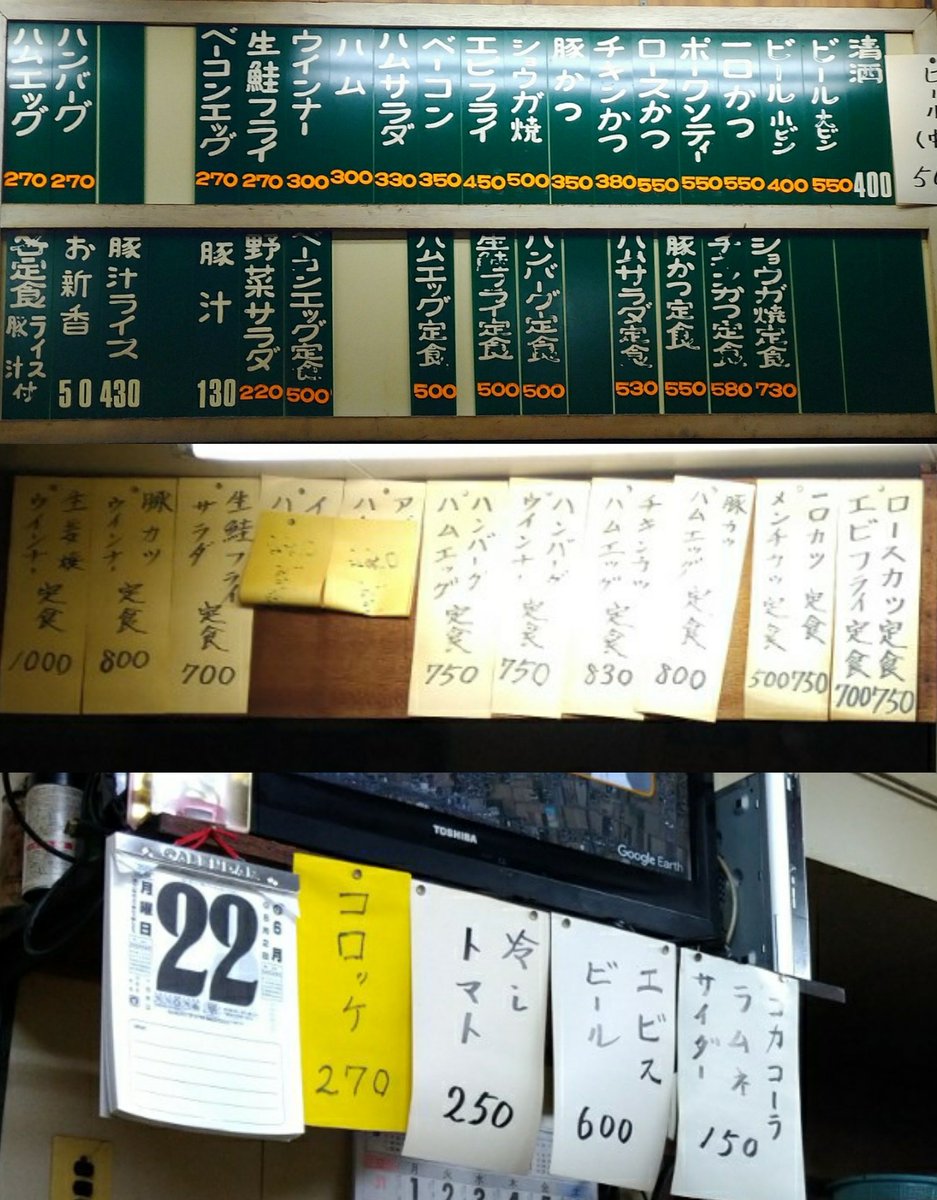 清酒 400
ビール 大ビン 550
ビール 小ビン 400
一口かつ 550
ポークソティー 550
ロースかつ 550
チキンかつ 380
豚かつ 350
ショウガ焼 500
エビフライ 450
ベーコン 350
ハムサラダ 330
ハム 300
ウインナー 300
生鮭フライ 270
ベーコンエッグ 270
ハンバーグ 270
ハムエッグ 270
ショウガ焼定食 730
チキンカツ定食 580
豚かつ定食 550
ハムサラダ定食 530
ハンバーグ定食 500
生鮭フライ定食 500
ハムエッグ定食 500
ベーコンエッグ定食 500
野菜サラダ 220
豚汁 130
豚汁ライス 430
お新香 50
各定食 ライス 豚汁付
ロースカツ定食 750
エビフライ定食 700
一口カツ定食 750
メンチカツ定食 500
豚カツ
ハムエッグ 定食 800
チキンカツ
ハムエッグ 定食 830
ハンバーグ
ウインナー 定食 750
ハンバーグ
ハムエッグ 定食 750
生鮭フライ
サラダ 定食 700
豚カツ
ウインナー 定食 800
生姜焼
ウインナー 定食 1000
TOSHIBA
Google Earth
CALENDAR
6月
22
月曜日
コロッケ
270
冷し
トマト
250
エビス
ビール
600
コカコーラ
ラムネ
サイダー
150